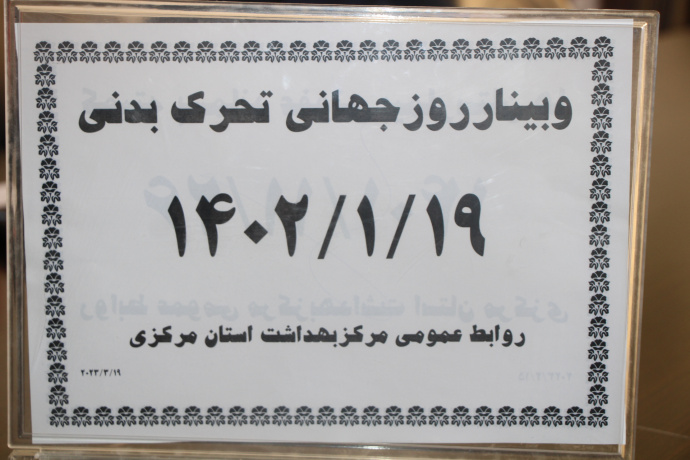 وبینار روز جهانی تحرک بدنی
۱۴۰۲/۱/۱۹
روابط عمومی مرکز بهداشت استان مرکزی
۲۰۲۳/۳/۱۹